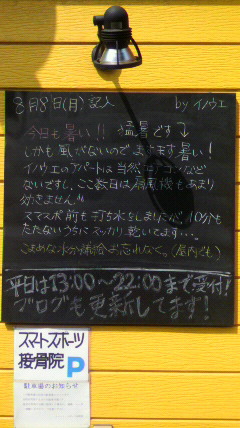 8月8日(月)記入 by イノウエ
今日も暑い!! 猛暑です↓
しかも風がないのでますます暑い!
イノウエのアパートは当然、エアコンなど
ないですし、ここ数日は扇風機もあまり
効きません!!
スマスポ前も打ち水をしましたが、10分も
たたないうちにスッカリ乾いてます…
こまめな水分補給を忘れなく。(屋内でも)
平日は13:00〜22:00まで受付!
ブログも更新してます!
スマートスポーツ
接骨院 P
駐車場のお知らせ